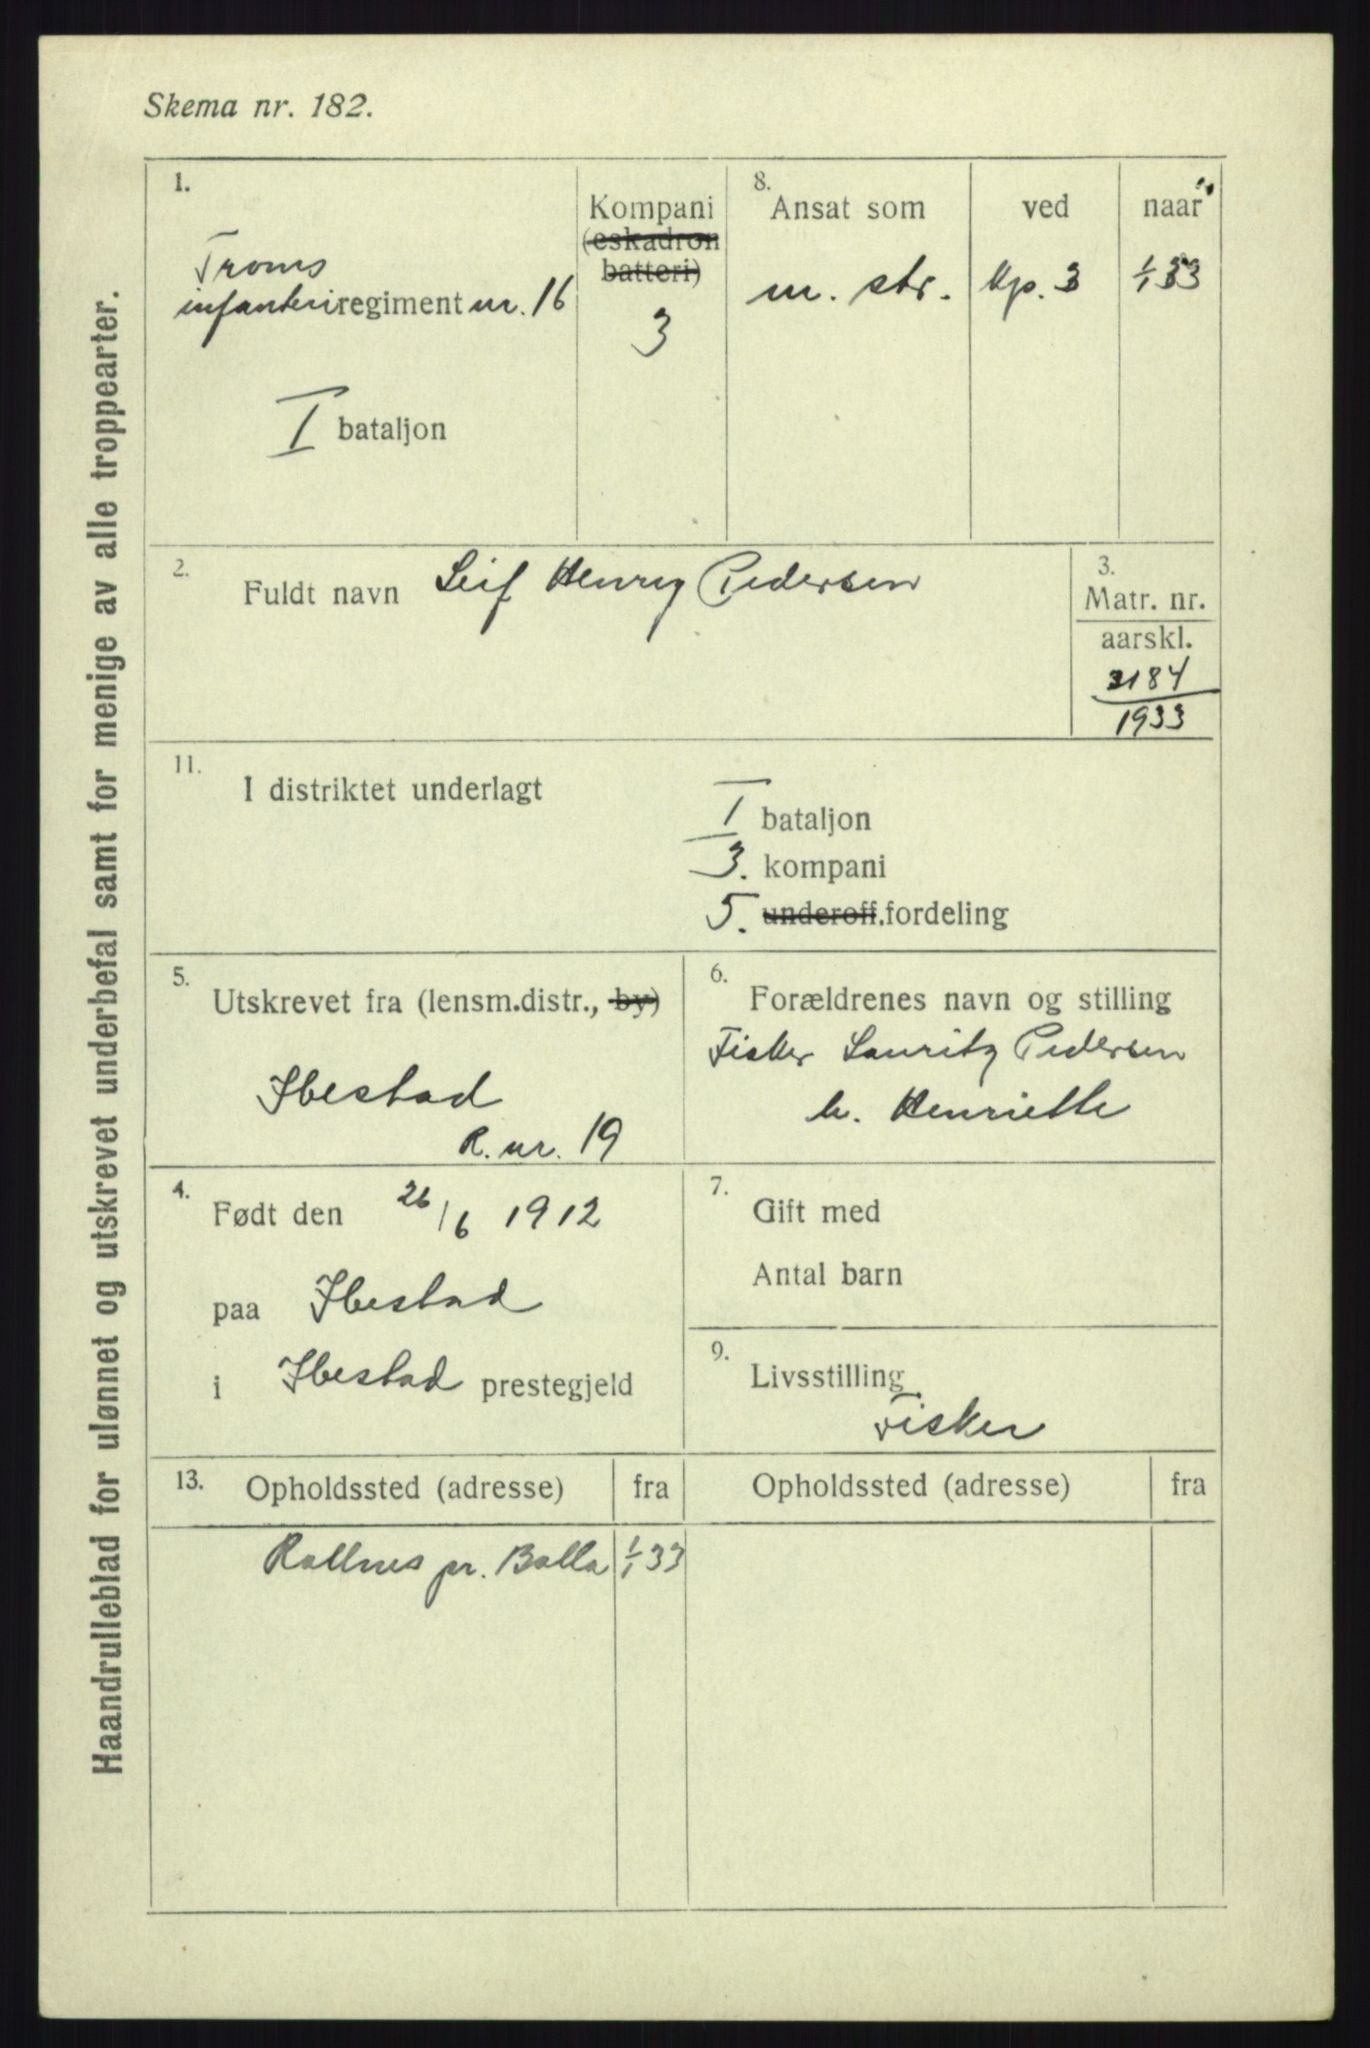 Skema nr. 182.
Haandrulleblad for ulønnet og utskrevet underbefal samt for menige av alle troppearter.
1.
Troms
infanteriregiment nr. 16
I bataljon
Kompani
(eskadron
batteri)
3
8.
Ansat som
m. str.
ved
Kp. 3
naar
1/1 33
2.
Fuldt navn Leif Henry Pedersen
3.
Matr. nr.
aarskl.
3184
1933
11.
I distriktet underlagt
I bataljon
3. kompani
5. underoff.fordeling
5.
Utskrevet fra (lensm.distr., by)
Ibestad
R. nr. 19
6.
Forældrenes navn og stilling
Fisker Lauritz Pedersen
h. Henriette
4.
Født den 26/6 1912
paa Ibestad
i Ibestad prestegjeld
7.
Gift med
Antal barn
9.
Livsstilling
Fisker
13. Opholdssted (adresse) fra Opholdssted (adresse) fra
Rollnes pr. Bolla 1/1 33